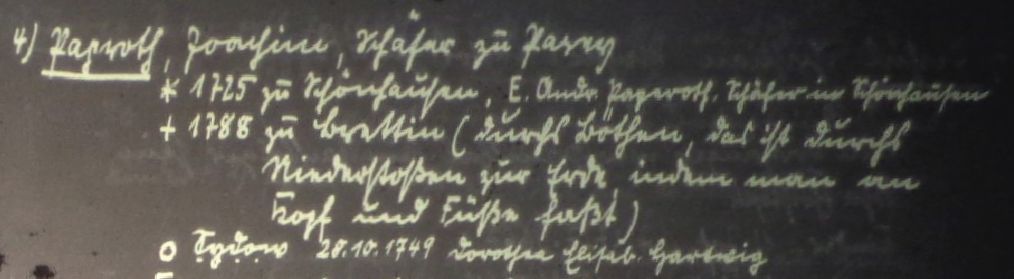 4) Paproth, Joachim, Schäfer zu Parey
* 1725 zu Schönhausen, E. Andr. Paperoth, Schäfer in Schönhausen
+ 1788 zu Brettin (durchs Böthen, das ist durchs
Niederstoßen zur Erde, indem man an
Kopf und Füße faßt)
o Sydow 28.10.1749 Dorothea Elisab. Hartwig